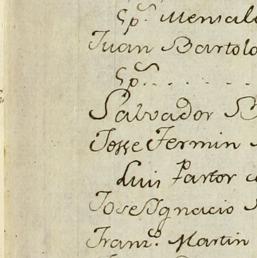 Esp.ª Mensal
Juan Bartolo
Esp.ª . . . . . .
Salvador B
Josse Fermin
Luis Partor
Jose Ygnacio
Fran.co Martin